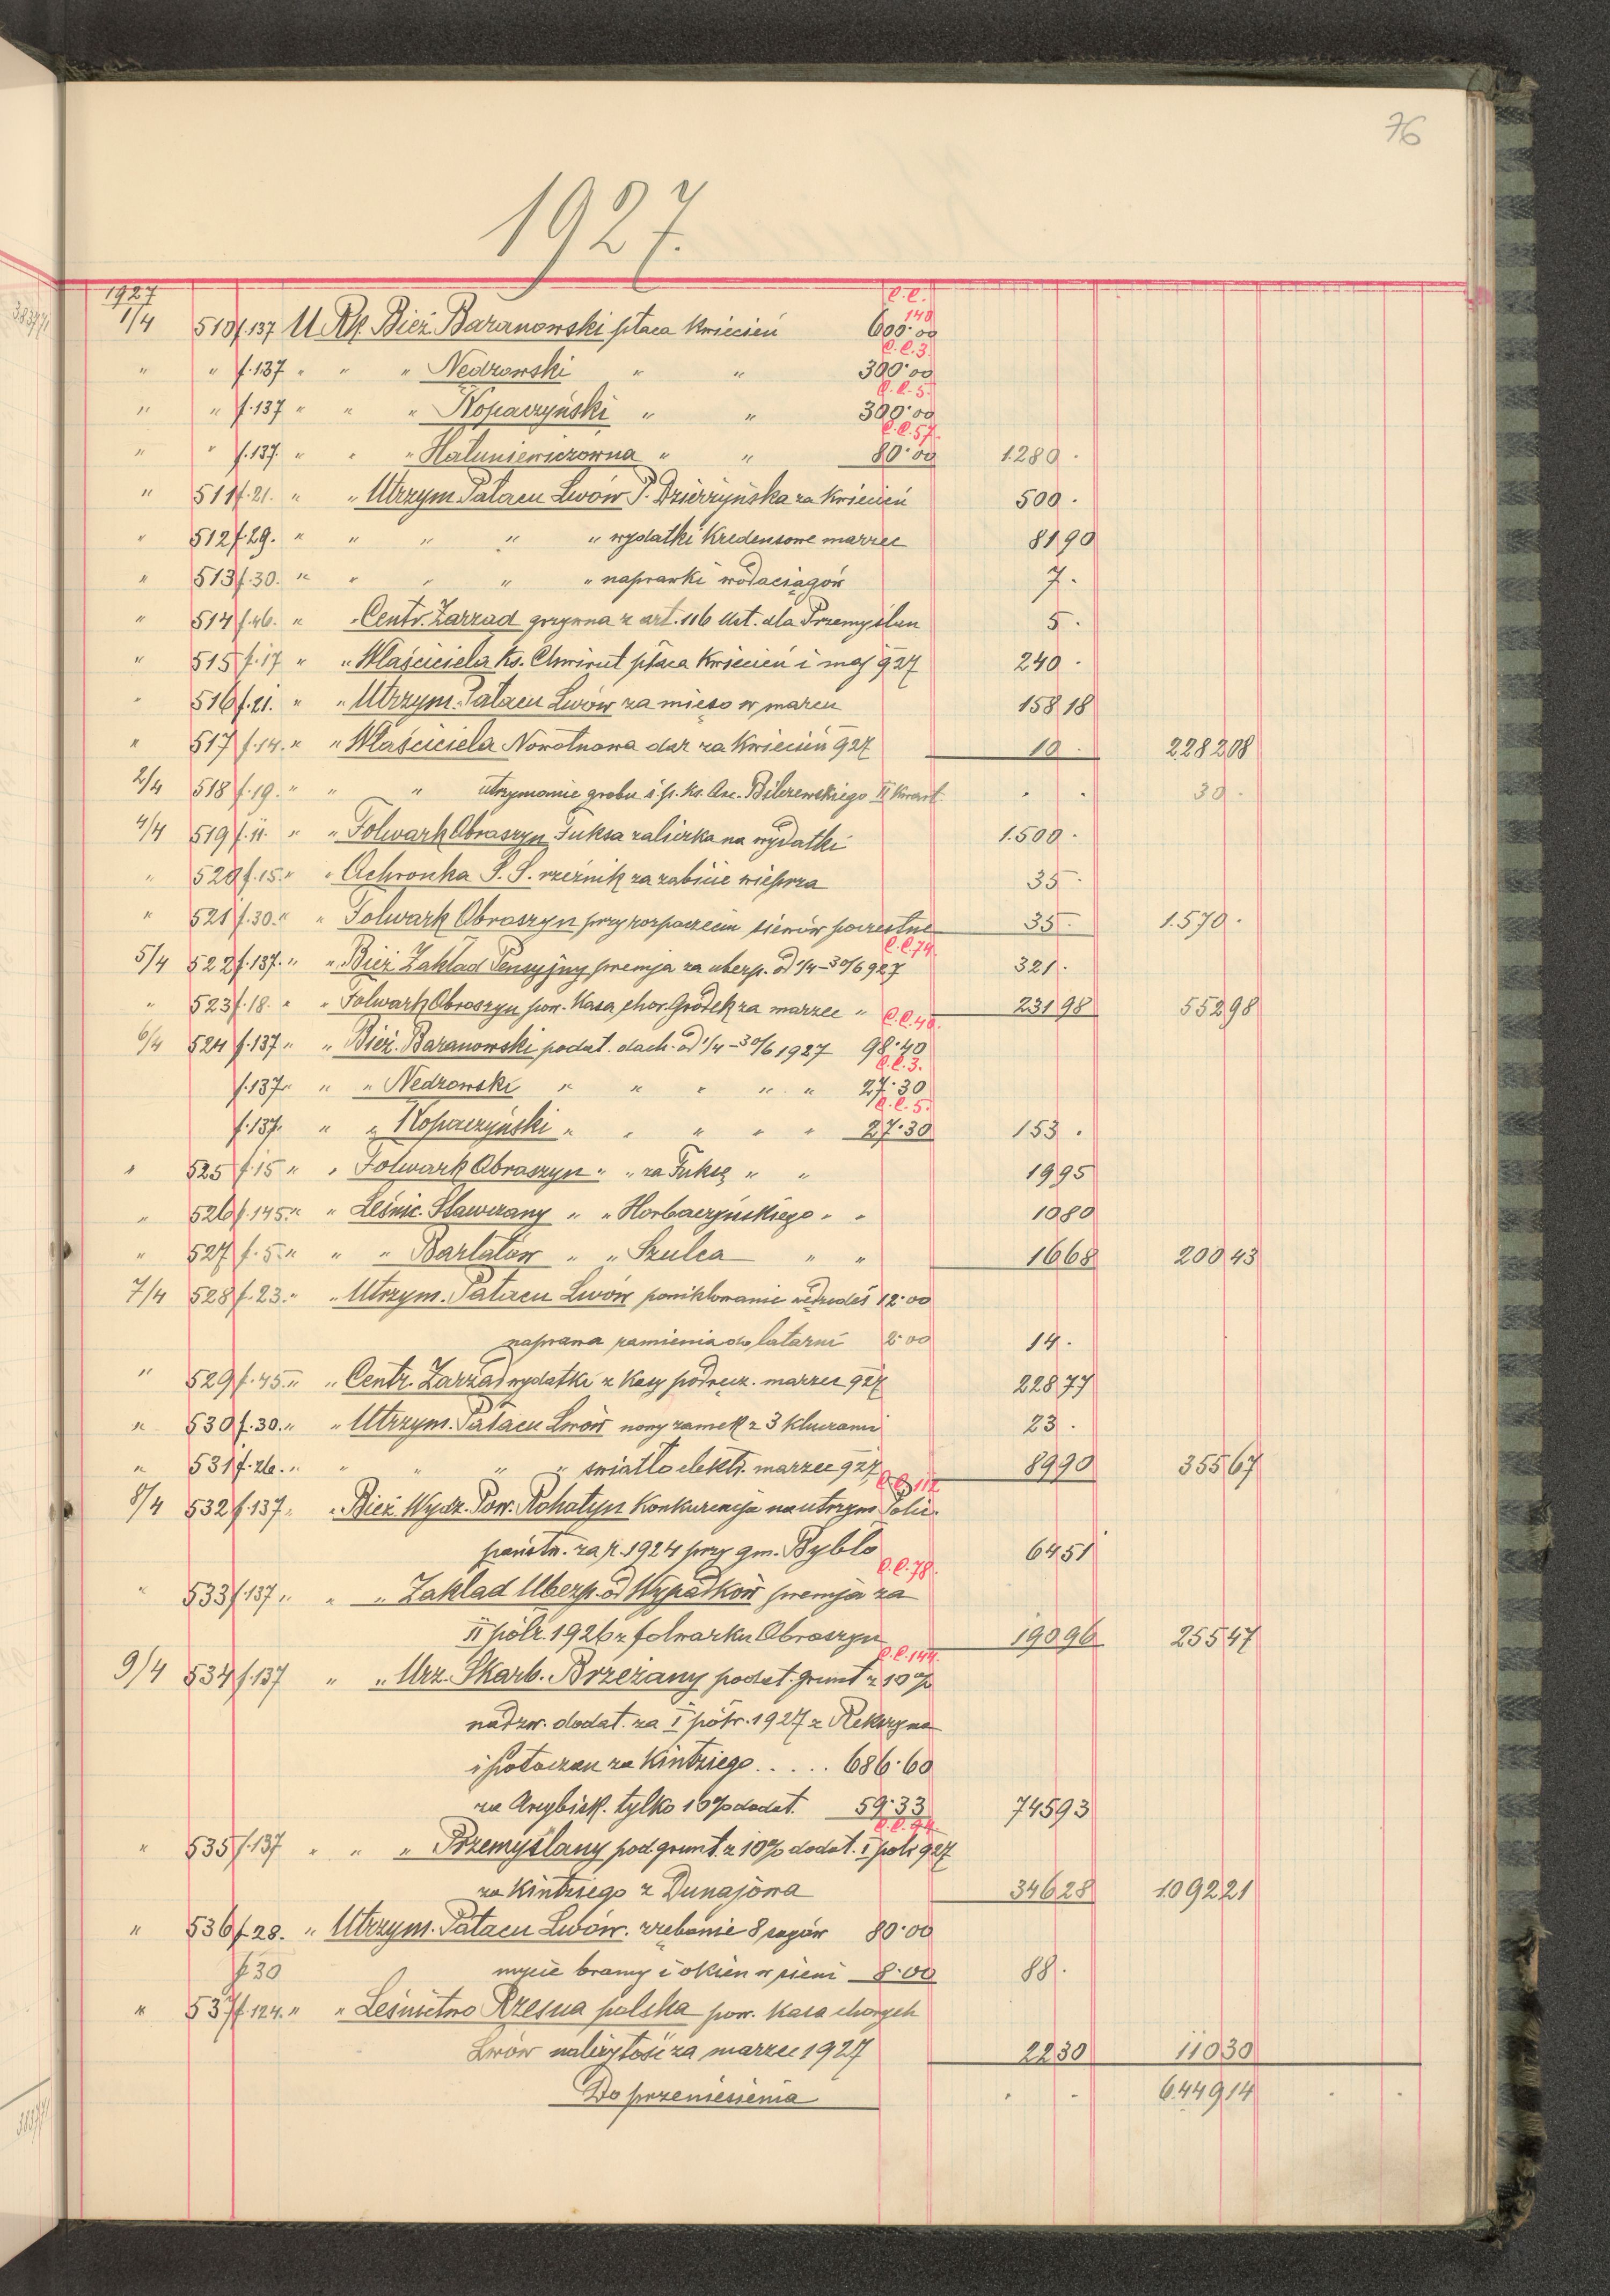 76
1927.
1927
C.C.
1/4 510 f.137 U Rk. Bież. Baranowski płaca kwiecień 140 600·00
" " f.137 " " " Nedzowski " " C.C.3. 300·00
" " f.137 " " " Kopaczyński " " C.C.5. 300·00
" " f.137 " " " Haluniewiczówna " " C.C.57. 80·00 1.280 ·
" 511 f.21. " " Utrzym. Pałacu Lwów P. Dzierżyńska za kwiecień 500 ·
" 512 f.29. " " " " " wydatki kredensowe marzec 81 90
" 513 f.30. " " " " " naprawki wodaciągów 7 ·
" 514 f.46. " " Centr. Zarząd grzywna z art. 116 Ust. dla Przemyślan 5 ·
" 515 f.17 " " Właściciela Ks. Chwirut płaca kwiecień i maj 927 240 ·
" 516 f.21. " " Utrzym. Pałacu Lwów za mięso w marcu 158 18
" 517 f.14. " " Właściciela Nowotnowa dar za kwiecień 927 10 · 2.282 08
2/4 518 f.19. " " " utrzymanie grobu ś.p. ks. Arc. Bilczewskiego II kwart. · · 30 ·
4/4 519 f.11. " " Folwark Obroszyn Fuksa zaliczka na wydatki 1.500 ·
" 520 f.15. " " Ochronka S. S. rzeźnik za zabicie wieprza 35 ·
" 521 f.30. " " Folwark Obroszyn przy rozpoczęciu siewów poczestne 35 · 1.570 ·
5/4 522 f.137. " " Bież. Zakład Pensyjny premja za ubezp. od 1/4-30/6 927 C.C.74. 321 ·
" 523 f.18. " " Folwark Obroszyn pow. Kasa chor. Gródek za marzec " 231 98 552 98
6/4 524 f.137 " " Bież. Baranowski podat. doch. od 1/4-30/6 1927 C.C.40. 98·40
f.137 " " " Nedzowski " " " " " C.C.3. 27·30
f.137. " " Kopaczyński " " " " " C.C.5. 27·30 153 ·
" 525 f.15 " " Folwark Obroszyn " " za Fuksę " " 19 95
" 526 f.145. " " Leśnic. Stawczany " " Horbaczyńskiego " " 10 80
" 527 f.5. " " " Bartatów " " Szulca " " 16 68 200 43
7/4 528 f.23. " " Utrzym. Pałacu Lwów poniklowanie 12·00
naprawa ramienia do latarni 2·00 14 ·
" 529 f.45. " " Centr. Zarząd wydatki z Kasy podręcz. marzec 927 228 77
" 530 f.30. " " Utrzym. Pałacu Lwów nowy zamek z 3 kluczami 23 ·
" 531 f.26. " " " " " światło elektr. marzec 927 89 90 355 67
8/4 532 f.137 " " Bież. Wydz. Pow. Rohatyn Konkurencja na utrzym. Polic. C.C.112
państw. za r. 1924 przy gm. Bybło 64 51
" 533 f.137 " " " Zakład Ubezp. od Wypadków premja za C.C.78.
II półr. 1926 z folwarku Obroszyn 190 96 255 47
9/4 534 f.137 " " Urz. Skarb. Brzeżany podat. grunt z 10% C.C.144.
nadzw. dodat. za I półr. 1927 z Rekszyna
i Potoczan za Kintziego . . . . . 686·60
za Arcybisk. tylko 10% dodat. 59·33 745 93
" 535 f.137 " " " Przemyślany pod. grunt. z 10% dodat. I półr 927 C.C.94
za Kintziego z Dunajowa 346 28 1.092 21
" 536 f.28. " Utrzym. Pałacu Lwów. zrębanie 8 sągów 80·00
f.30 mycie bramy i okien w sieni 8·00 88 ·
" 537 f.124. " " Leśnictwo Rzesna polska pow. Kasa chorych
Lwów należytość za marzec 1927 22 30 110 30
Do przeniesienia · · 6.449 14 · ·